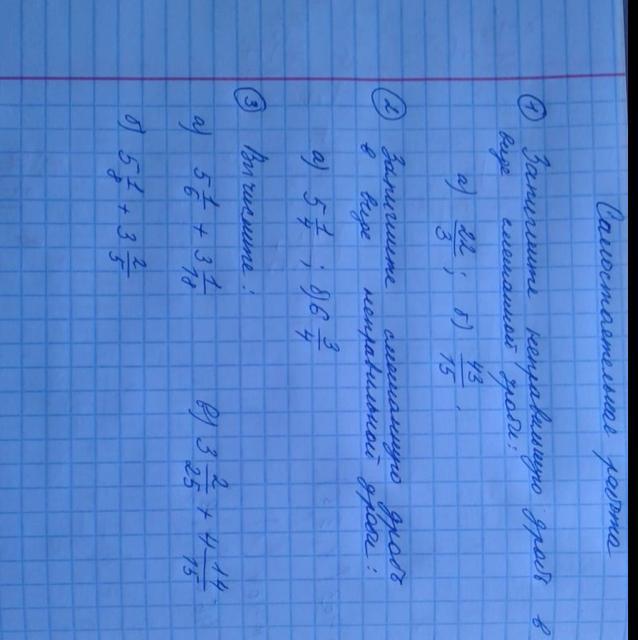 Самостоятельная работа
① Запишите неправильную дробь в
виде смешанной дроби:
а) 22/3 ; б) 43/15 .
② Запишите смешанную дробь
в виде неправильной дроби:
а) 5 1/4 ; б) 6 3/4
③ Вычислите:
а) 5 1/6 + 3 1/18 в) 3 2/25 + 4 14/15
б) 5 1/8 + 3 2/5